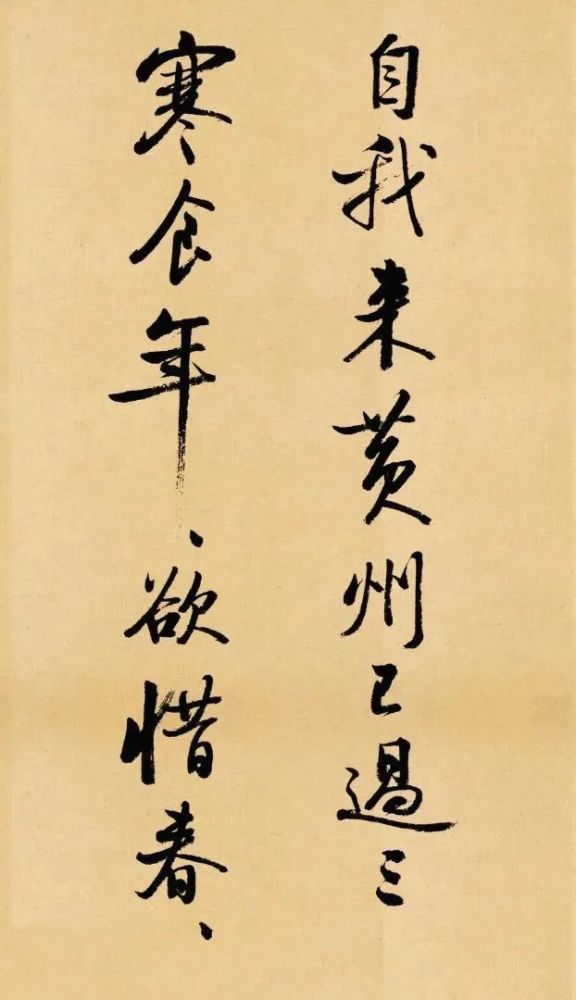 自我来黄州已過三
寒食年〻欲惜春〻